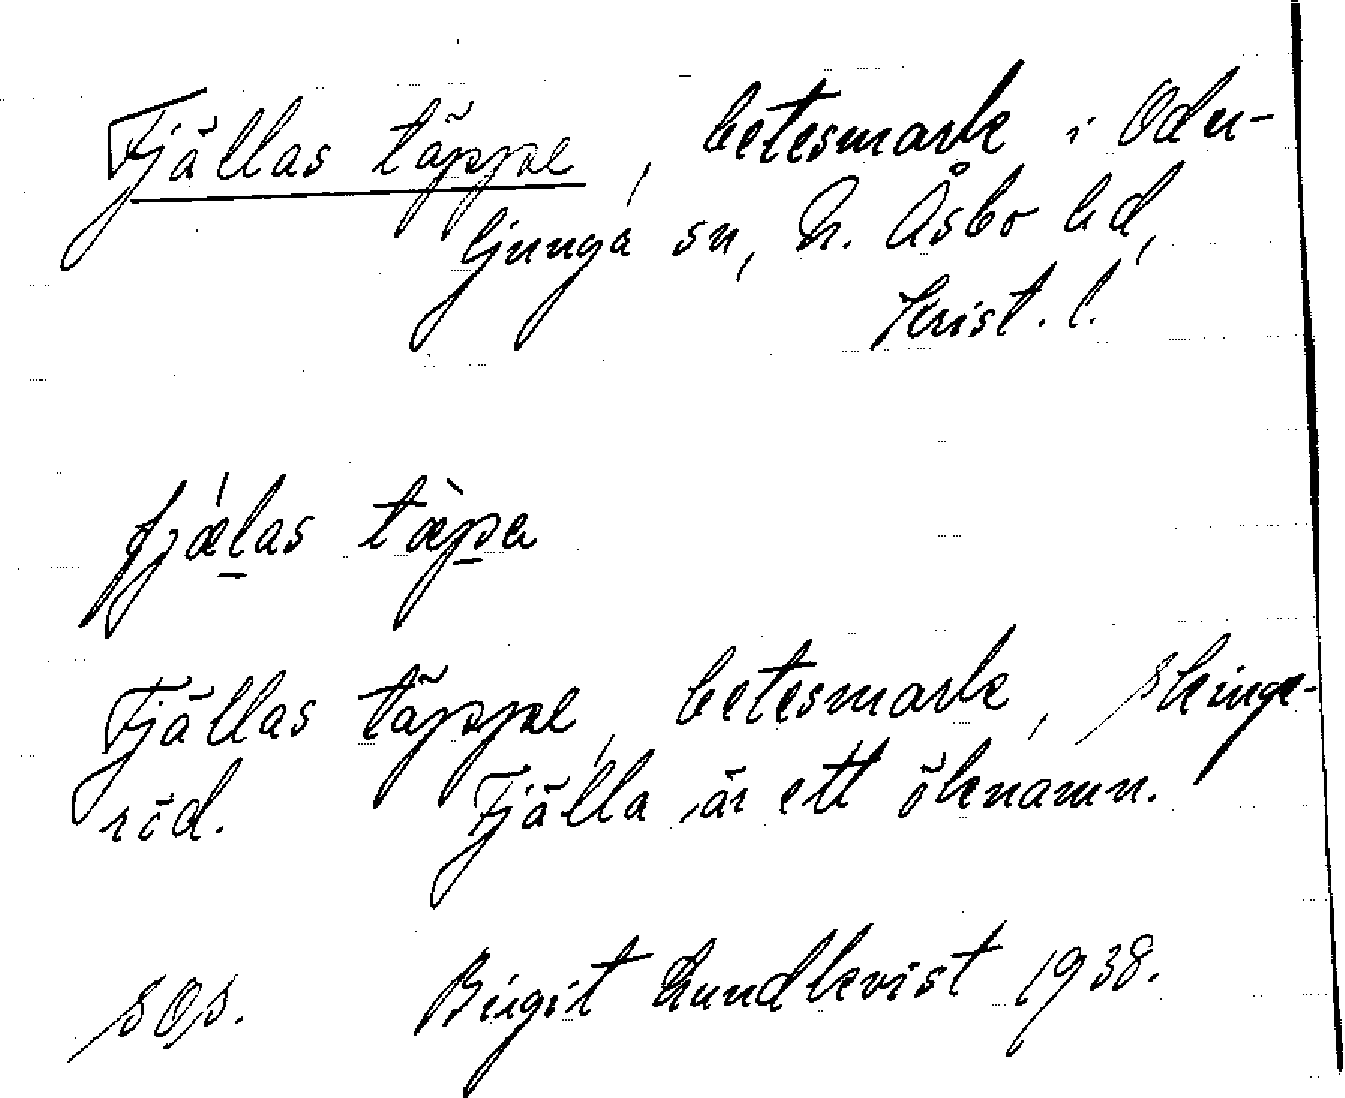 Fjällas täppe, betesmark i Oder-
ljunga sn, N. Åsbo hd,
Krist. l.
fjǽlas tæ̀pa
Fjällas täppe, betesmark, Skinge-
röd. Fjälla är ett öknamn.
SOS. Birgit Lundkvist 1938.